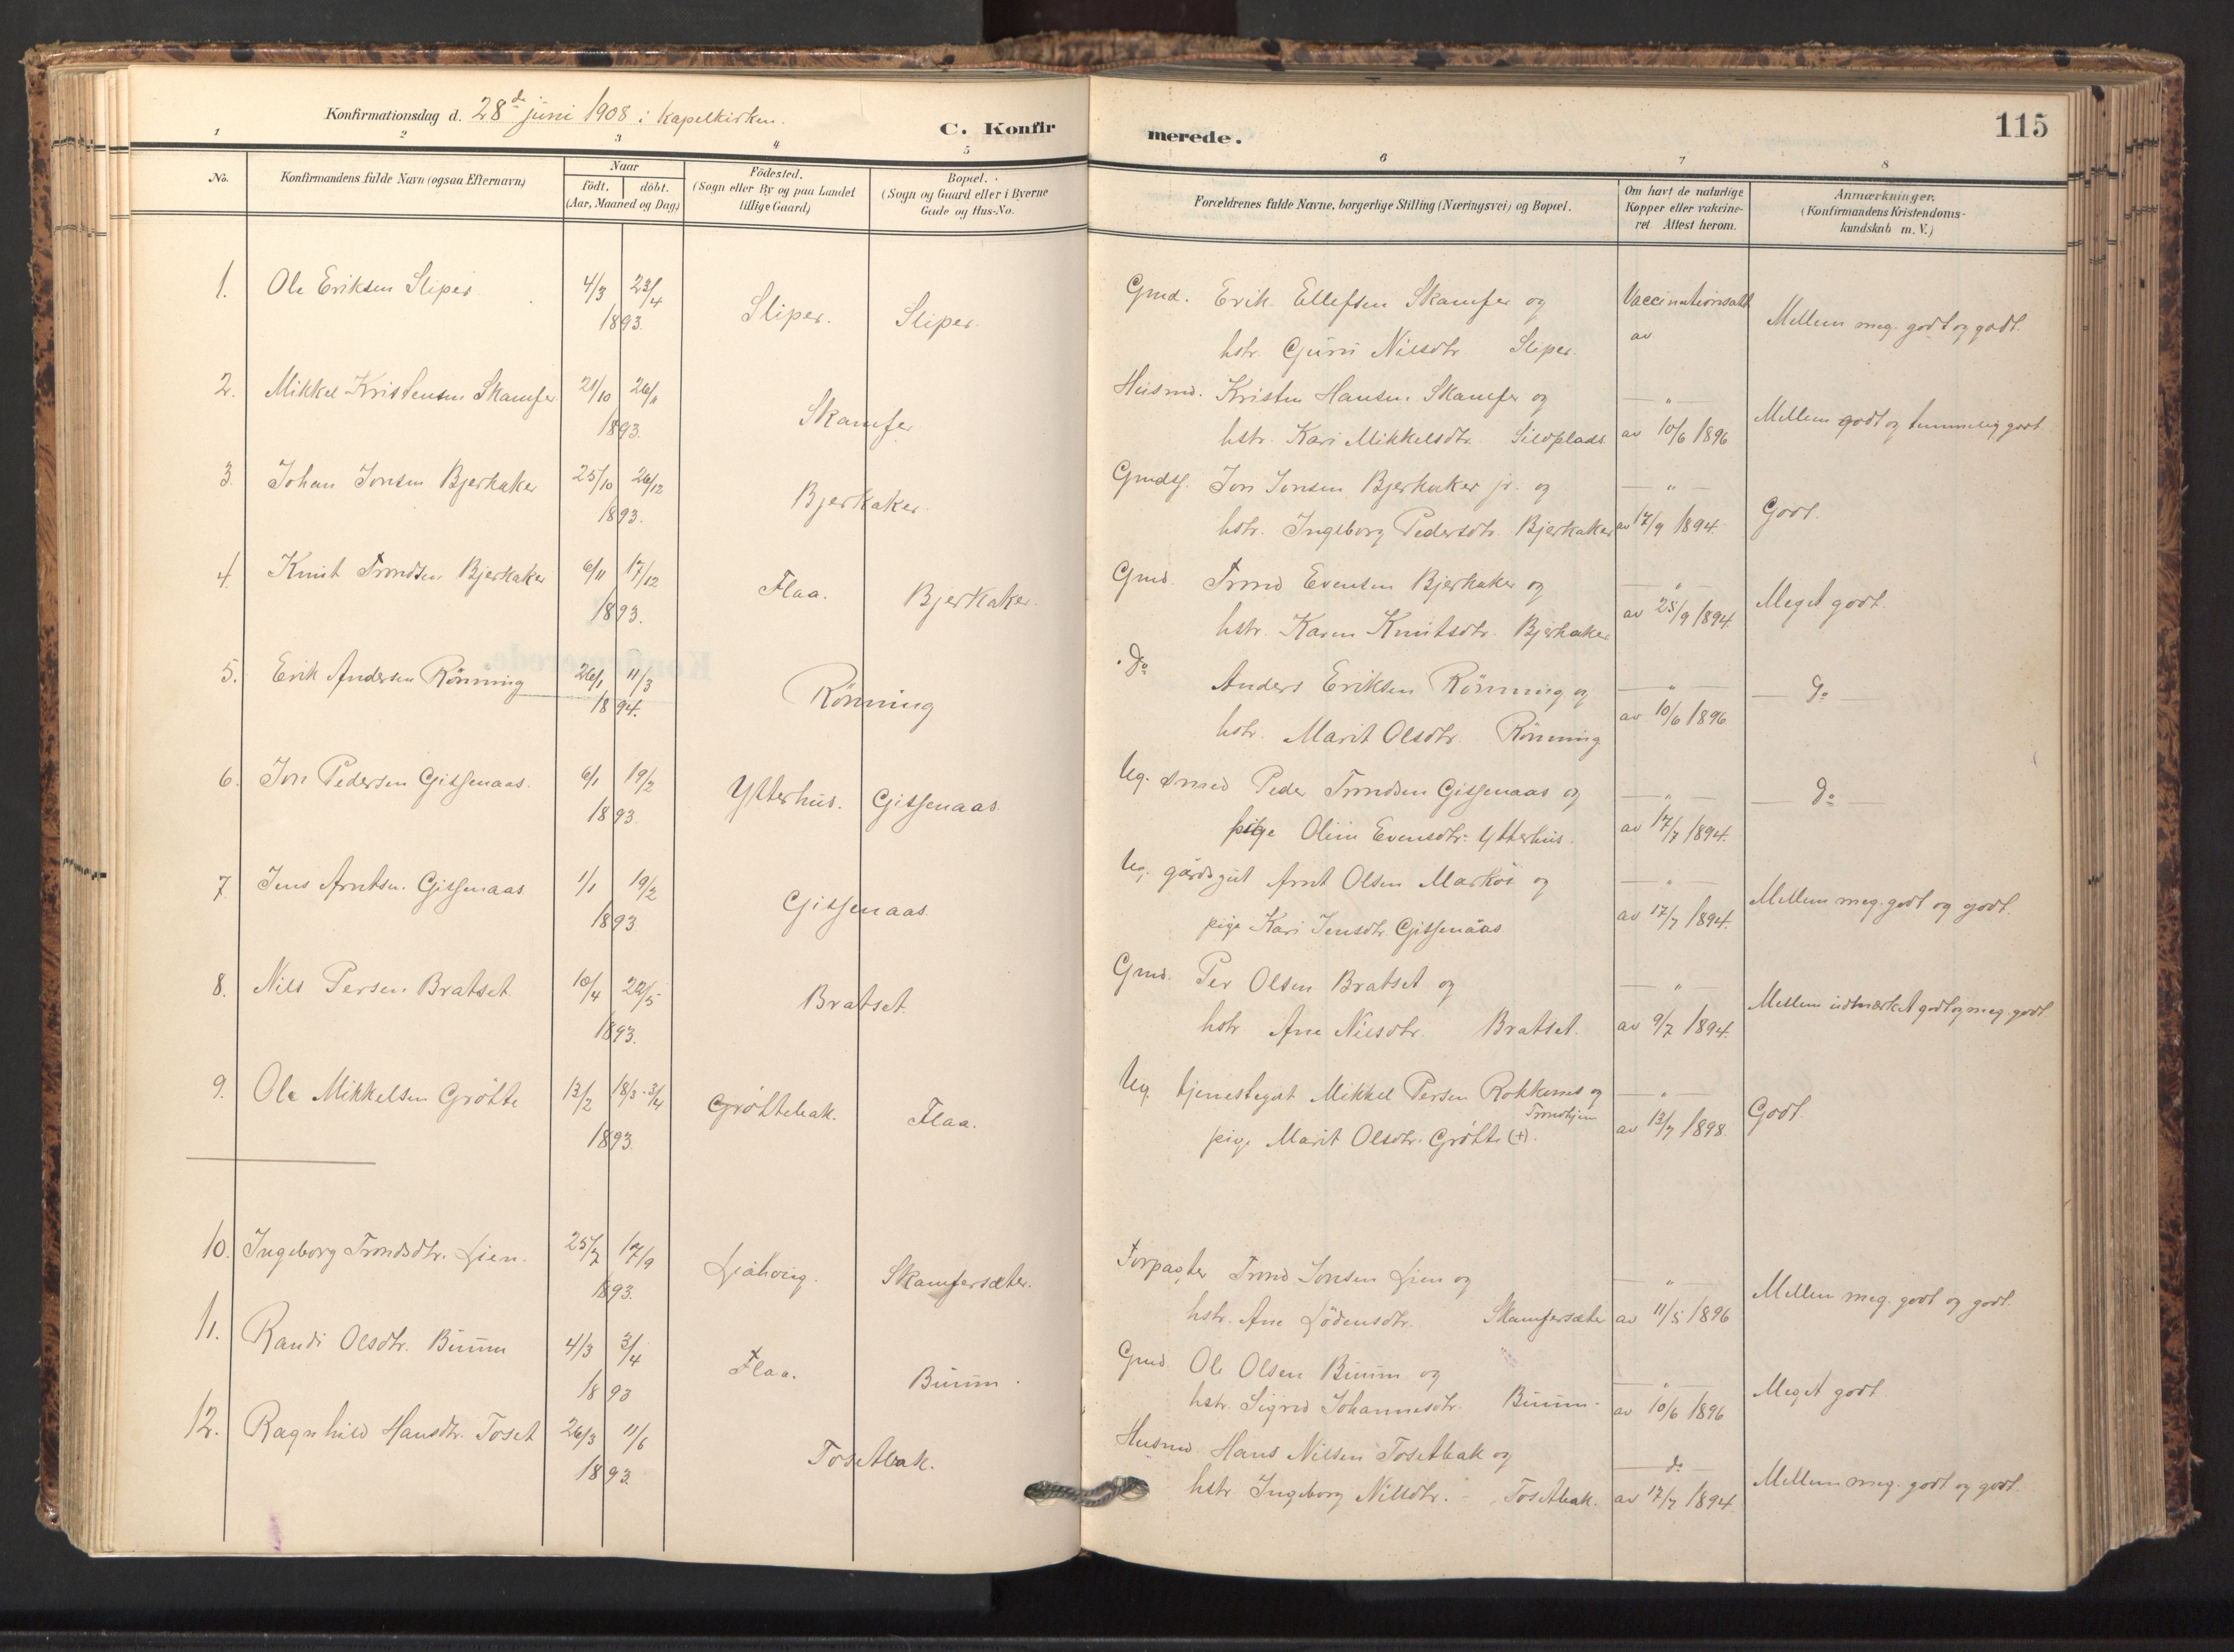 Konfirmationsdag d. 28de juni 1908 i Kapelkirken.
C. Konfirmerede.
115
1 2 3 4 5 6 7 8
No.
Konfirmandens fulde Navn (ogsaa Efternavn)
Naar
födt. döbt.
(Aar, Maaned og Dag)
Födested.
(Sogn eller By og paa Landet
tillige Gaard)
Bopæl.
(Sogn og Gaard eller i Byerne
Gade og Hus-No.
Forældrenes fulde Navne, borgerlige Stilling (Næringsvei) og Bopæl.
Om havt de naturlige
Kopper eller vakcine-
ret Attest herom.
Anmærkninger.
(Konfirmandens Kristendoms-
kundskab m. V.)
1. Ole Eriksen Sliper 4/3 23/4 1893. Sliper. Sliper. Gmd. Erik Ellefsen Skamfer og Vaccinationsatt. Mellem meg. godt og godt.
hstr. Guru Nilsdtr Sliper. av.
2. Mikkel Kristensen Skamfer 21/10 26/11 1893. Skamfer Husmd. Kristen Hansen Skamfer og — " — Mellem godt og temmelig godt.
hstr. Kari Mikkelsdtr. Silvplads av 10/6 1896
3. Johan Jonsen Bjerkaker 25/10 26/12 1893. Bjerkaker. Gmdsf. Jon Jonsen Bjerkaker jr. og — " — Godt.
hstr. Ingeborg Pedersdtr. Bjerkaker av 17/9 1894.
4. Knut Trondsen Bjerkaker 6/11 17/12 1893. Flaa. Bjerkaker. Gmd. Trond Evensen Bjerkaker og — " — Meget godt.
hstr. Karen Knutsdtr. Bjerkaker av 25/9 1894.
5. Erik Andersen Rönning 26/1 11/3 1894. Rönning do Anders Eriksen Rönning og — " — — do —
hstr. Marit Olsdtr. Rönning av 10/6 1896
6. Jon Pedersen Gissenaas. 6/1 19/2 1893. Ytterhus. Gissenaas Ug. smed Peder Trondsen Gissenaas og — " — — do —
pige Oline Evensdtr. Ytterhus. av 17/7 1894.
7. Jens Arntsen Gissenaas 1/1 19/2 1893 Gissenaas. Ug. gårdsgut Arnt Olsen Markör og — " — Mellem meg. godt og godt.
pige Kari Jensdtr. Gissenaas av 17/7 1894.
8. Nils Persen Bratset. 10/4 22/5 1893. Bratset. Gmd. Per Olsen Bratset og — " — Mellem udmærket godt og meg. godt.
hstr Ane Nilsdtr. Bratset. av 9/7 1894.
9. Ole Mikkelsen Grötte 13/2 18/3 - 3/4 1893. Gröttebak. Flaa. Ug. tjenestegut Mikkel Persen Rokkones og — " — Godt.
Trondhjem
pige Marit Olsdtr. Grötte (+). av 13/7 1898.
10. Ingeborg Trondsdtr. Lien. 25/7 17/9 1893. Skamfersæter. Forpagter Trond Jonsen Lien og — " — Mellem meg. godt og godt.
hstr. Ane Lödensdtr. Skamfersæter av 11/5 1896
11. Randi Olsdtr. Buum 4/3 3/4 1893 Flaa. Buum. Gmd. Ole Olsen Buum og — " — Meget godt.
hstr. Sigrid Johannesdtr. Buum. av 10/6 1896
12. Ragnhild Hansdtr. Toset 26/3 11/6 1893. Tosetbak. Husmd. Hans Nilsen Tosetbak og — do — Mellem meg. godt og godt.
hstr Ingeborg Nilsdtr. Tosetbak. av 17/7 1894